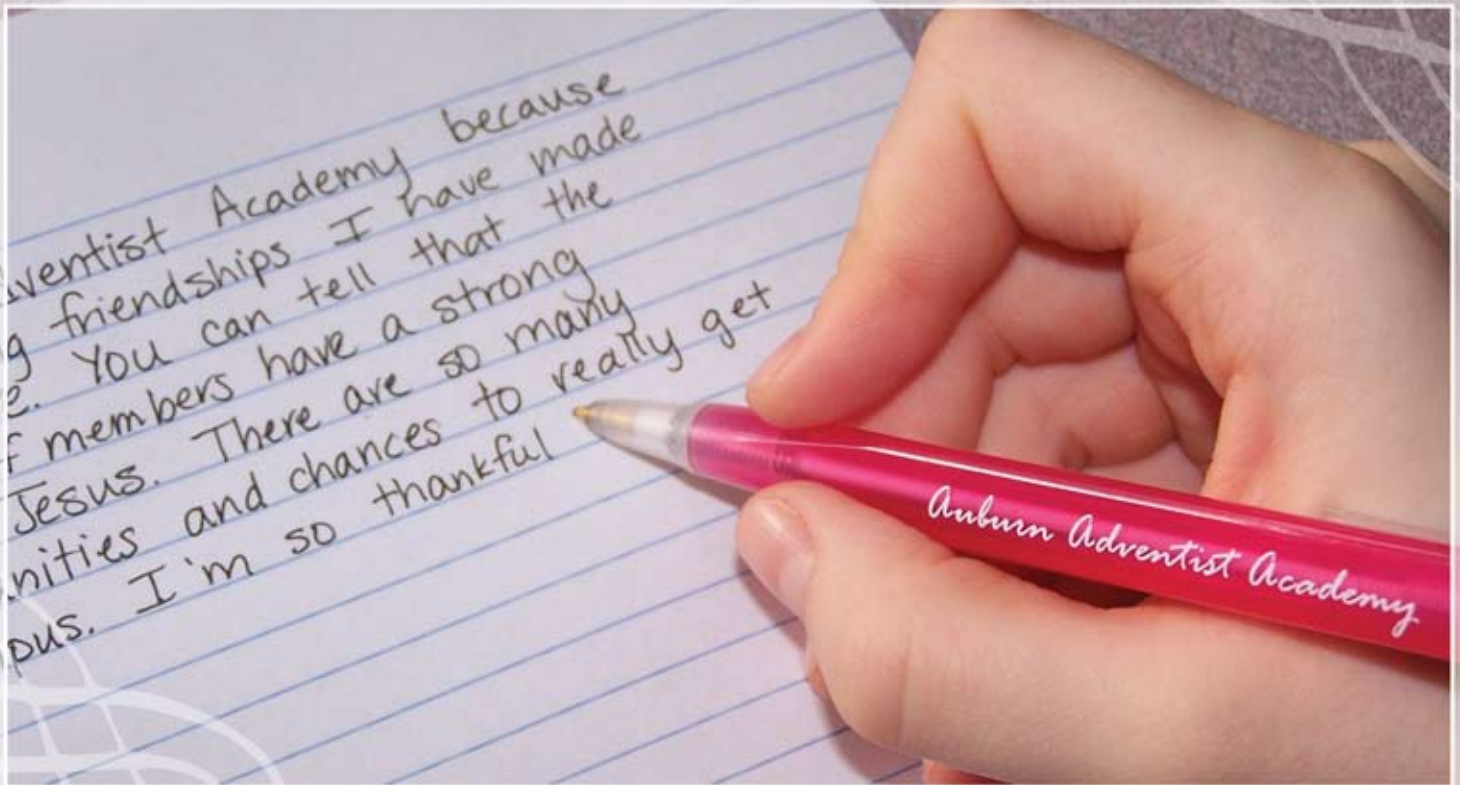 dventist Academy because
g friendships I have made
e. You can tell that the
f members have a strong
Jesus. There are so many
nities and chances to really get
pus. I'm so thankful
Auburn Adventist Academy